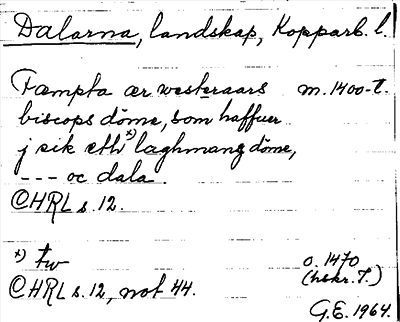 Dalarna, landskap, Kopparb. l.
Fæmpta ær westeraars m. 1400-t.
biscops döme, som haffuer
j sik eth x) laghmanzdöme,
--- oc dala.
CHRL s. 12.
x) tw o. 1470
CHRL s. 12, not 44. (hskr. T.)
G.E. 1964.